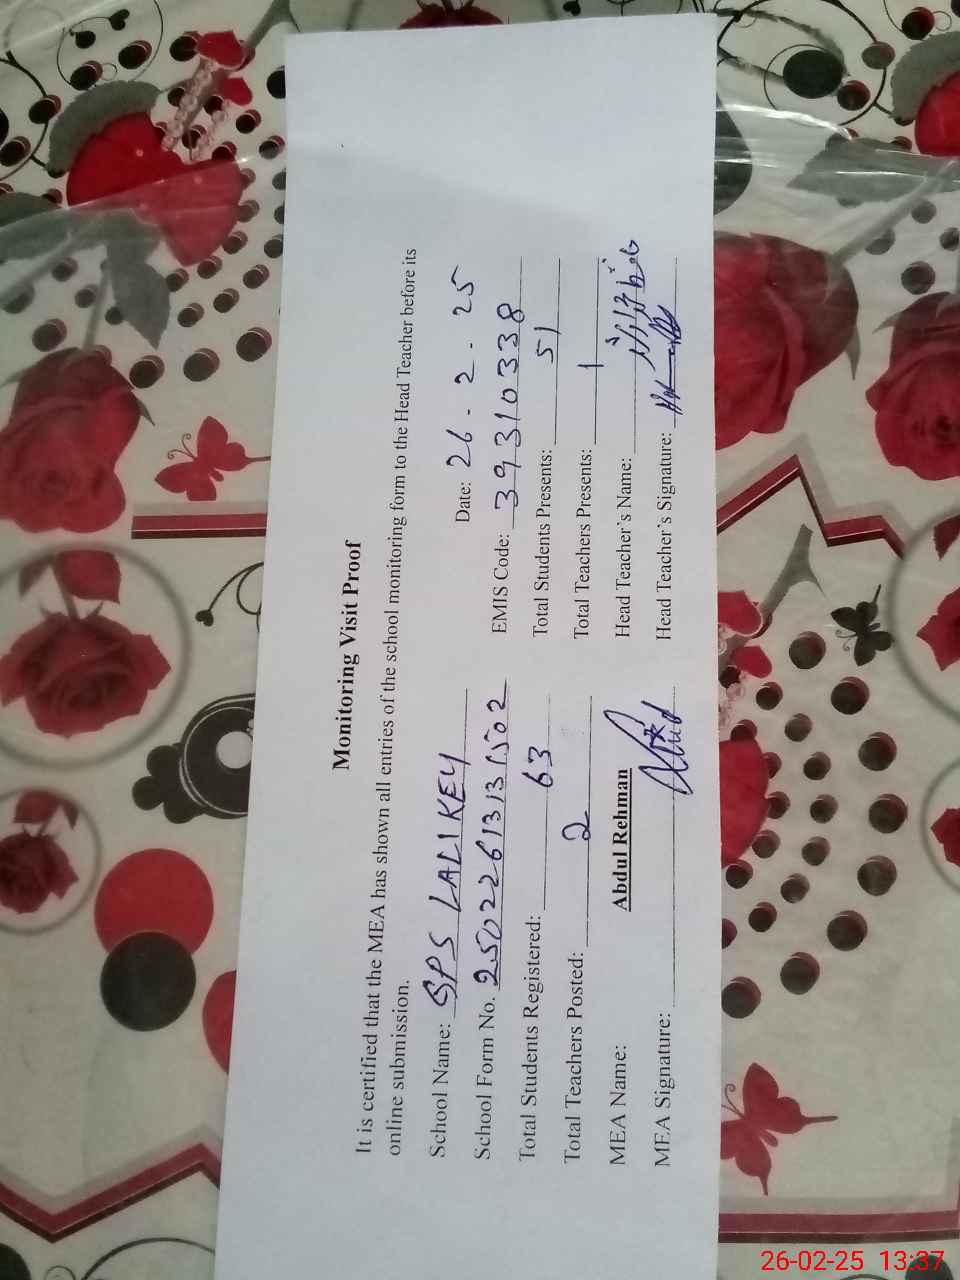 Monitoring Visit Proof
It is certified that the MEA has shown all entries of the school monitoring form to the Head Teacher before its
online submission.
Date: 26-2-25
School Name: GPS LALI KEY
EMIS Code: 39310338
School Form No. 25022613131502
Total Students Presents: 51
Total Students Registered: 63
Total Teachers Presents: 1
Total Teachers Posted: 2
Head Teacher's Name:
MEA Name: Abdul Rehman
Head Teacher's Signature:
MEA Signature:
26-02-25 13:37